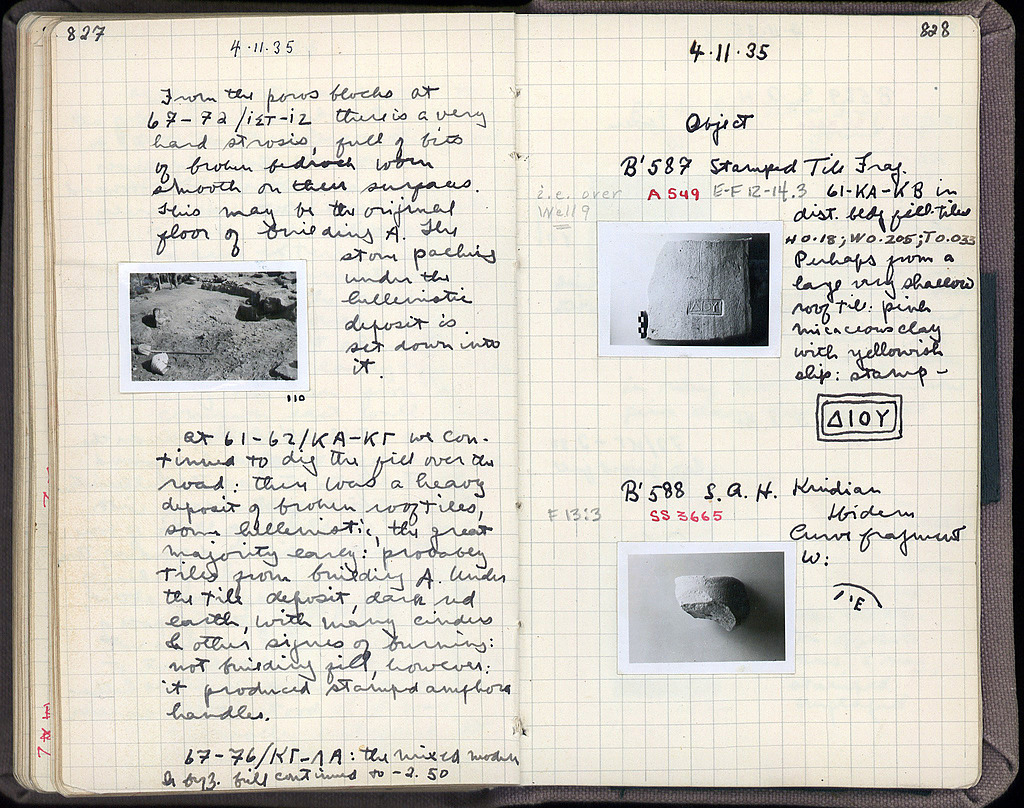 827
4·11·35
From the poros blocks at
67-72/ΙΣΤ-ΙΖ there is a very
hard strosis, full of bits
of broken bedrock worn
smooth on their surfaces.
This may be the original
floor of building A. The
stone packing
under the
hellenistic
deposit is
set down into
it.
110
at 61-62/ΚΑ-ΚΓ we con-
tinued to dig the fill over the
road: there was a heavy
deposit of broken rooftiles,
some hellenistic, the great
majority early: probably
tiles from building A. Under
the tile deposit, dark red
earth, with many cinders
& other signs of burning:
not building fill, however:
it produced stamped amphora
handles.
67-76/ΚΓ-ΛΑ: the mixed modern
& byz. fill continued to -2.50
828
4·11·35
Object
B'587 Stamped Tile Frag.
i.e. over
Well 9
A 549 E-F 12-14.3 61-KA-KB in
dist. bldg fill-tiles
H 0.18; W 0.205; T 0.033
Perhaps from a
large very shallow
roof tile: pink
micaceous clay
with yellowish
slip: stamp-
ΔΙΟΥ
B'588 S.A.H. Knidian
F 13:3 SS 3665 Ibidem
Curve fragment
W:
'E